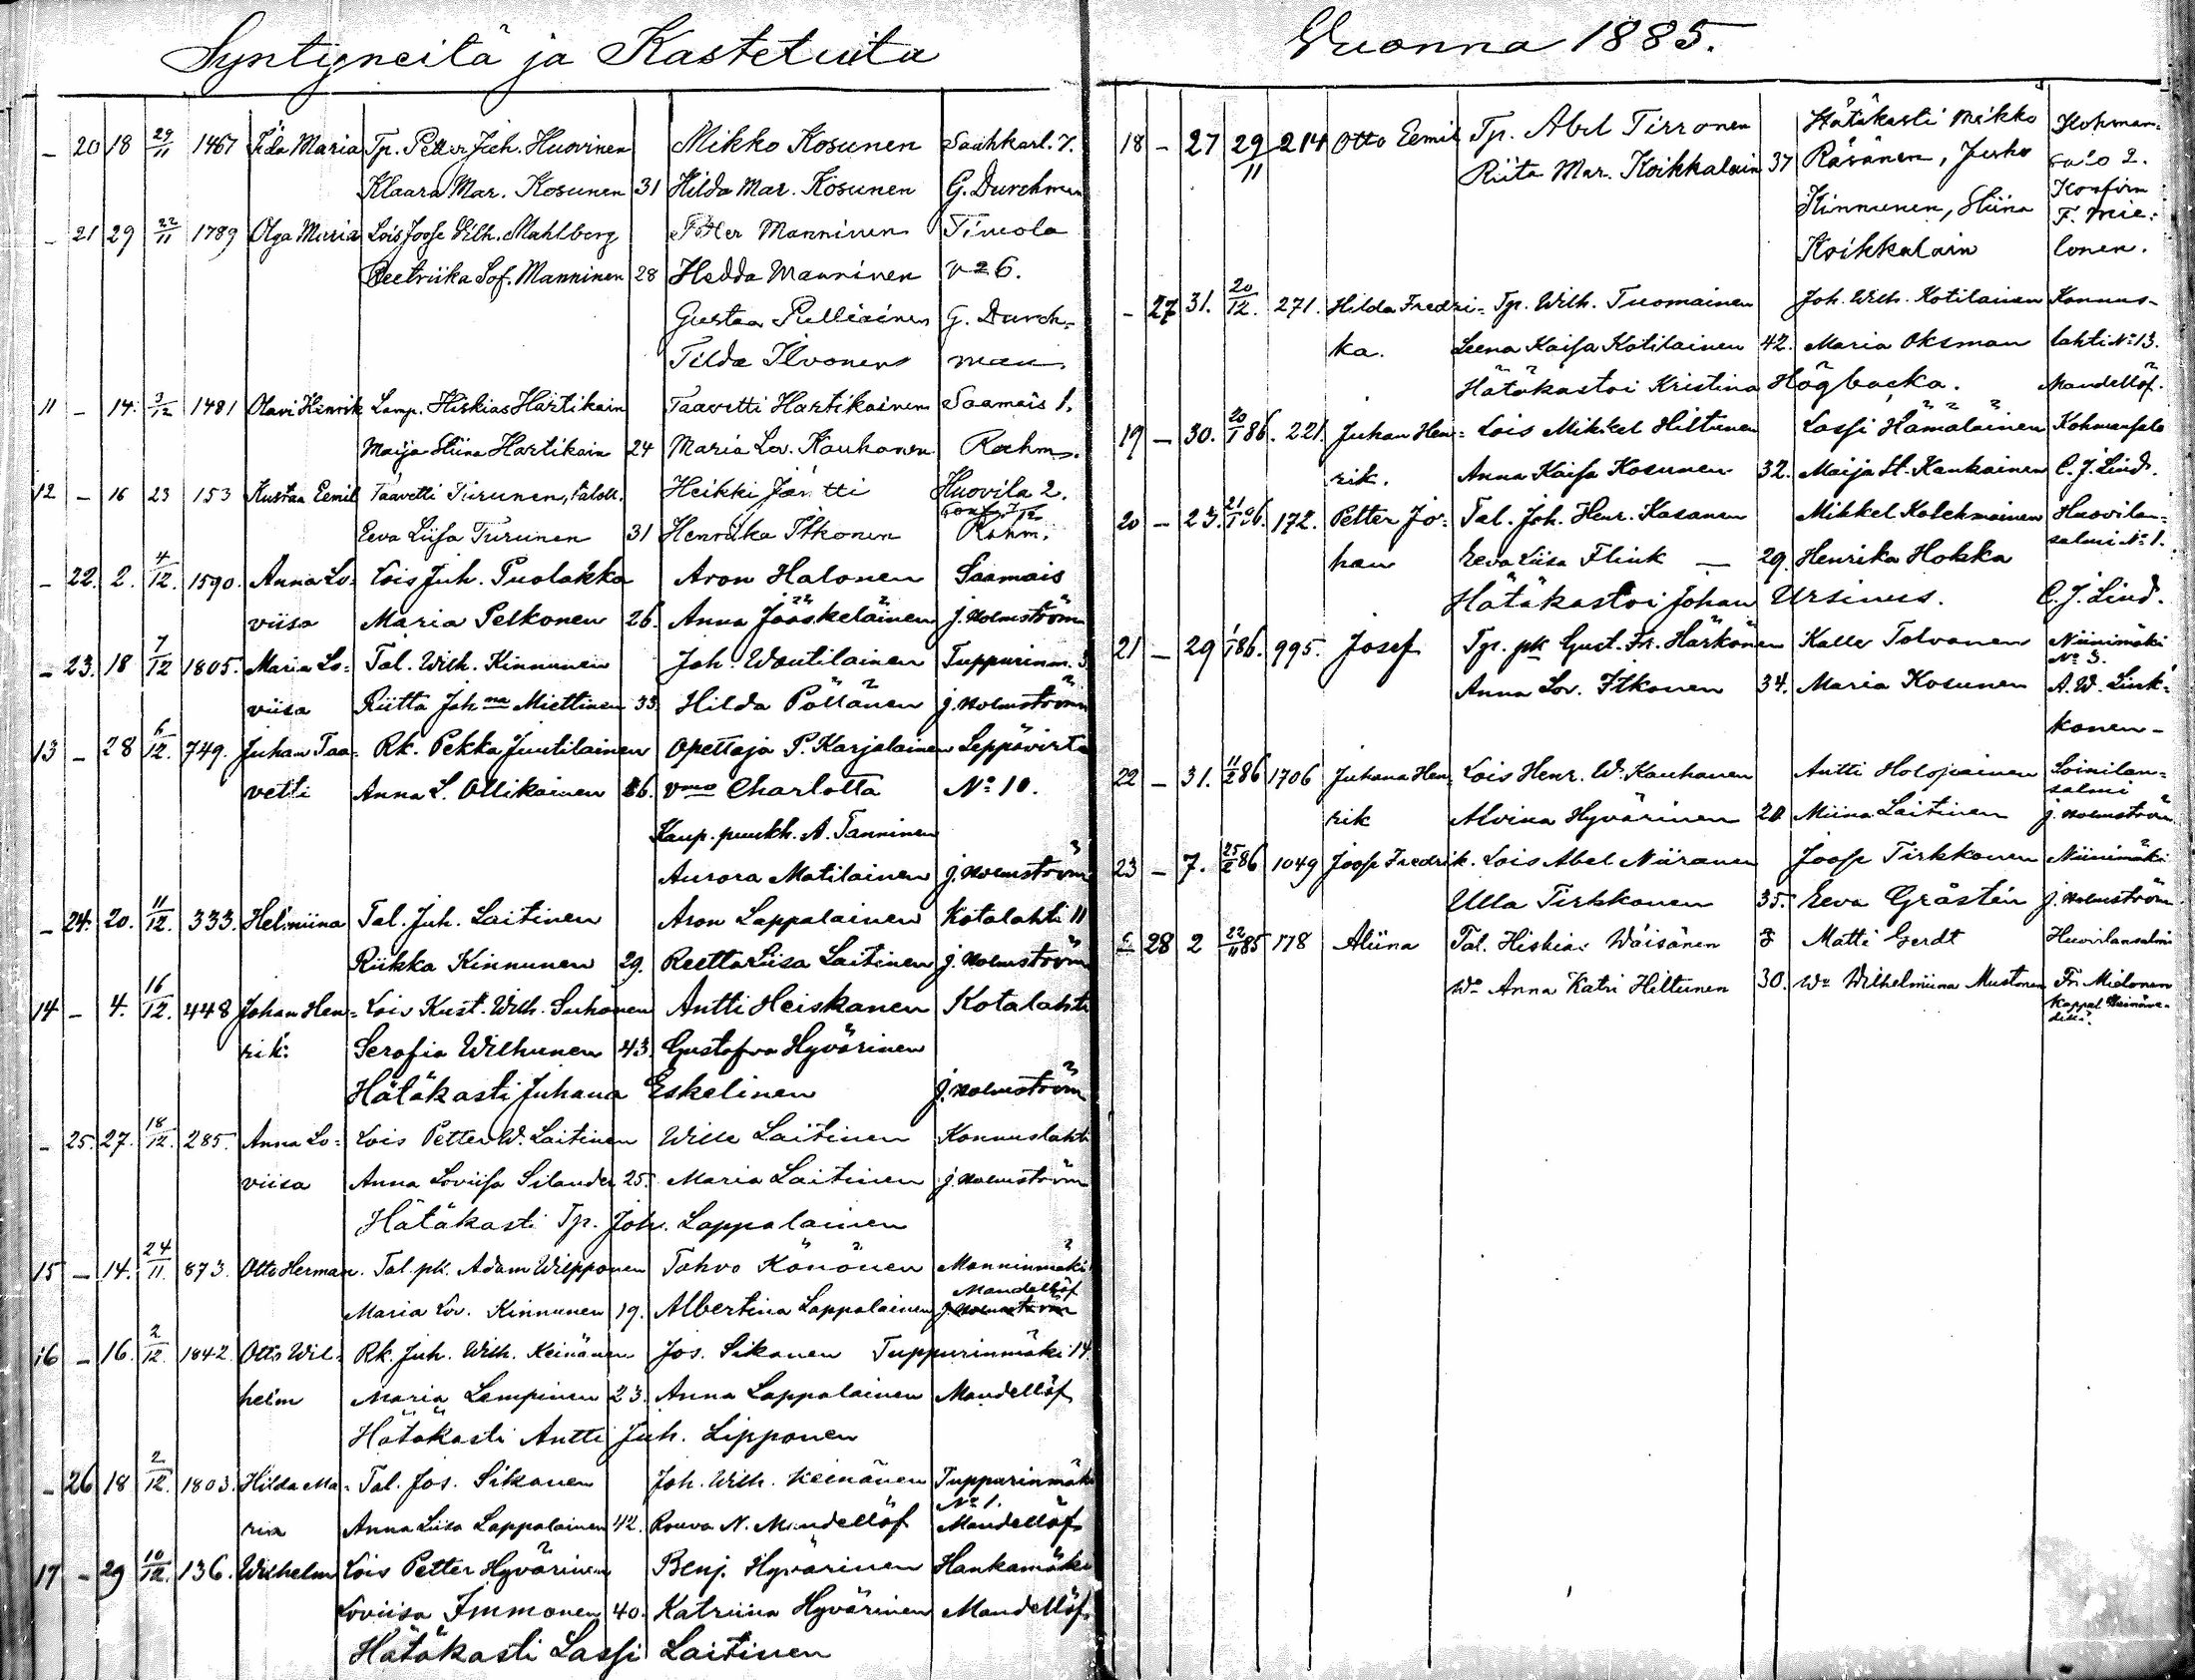 Syntyneitä ja Kastetuita
– 20 18 29/11 1467 Fida Maria Tp. Petter Joh. Huovinen Mikko Kosunen Saahkarl. 7.
Klaara Mar. Kosunen 31 Hilda Mar. Kosunen G. Durchman
– 21 29 22/11 1789 Olga Maria Lois Joose Vilh. Mahlberg Petter Manninen Timola
Reetriika Sof. Manninen 28 Hedda Manninen No 6.
Gustaa Pulliainen G. Durch-
Tilda Ilvonen man
11 – 14. 3/12 1481 Olavi Hinrik Lamp. Hiskias Hartikain Taavetti Hartikainen Saamais 1.
Maija Stiina Hartikain 24 Maria Lov. Kauhanen Rochm.
12 – 16 23 153 Kustaa Eemil Taavetti Turunen, talok. Heikki Jäntti Huovila 2.
Eeva Liisa Turunen 31 Henriika Itkonen Rohm.
– 22. 2. 4/12. 1590. Anna Lo- Lois Juh. Puolakka Aron Halonen Saamais
viisa Maria Pelkonen 26. Anna Jääskeläinen J. Holmström
– 23. 18 7/12 1805. Maria Lo= Tal. Wilh. Kinnunen Joh. Woutilainen Tuppurinm. 3
viisa Riitta Joh:na Miettinen 33 Hilda Pöllänen J. Holmström
13 – 28 6/12. 749. Juhan Taa- Rk. Pekka Juutilainen Opettaja P. Karjalainen Leppävirta
vetti Anna L. Ollikainen 26. vmo Charlotta No 10.
Kaup. puukh. A. Tanninen
Aurora Matilainen J. Holmström
– 24. 20. 11/12. 333. Helmiina Tal. Juh. Laitinen Aron Lappalainen Kotalahti 11
Riikka Kinnunen 29. Reetta Liisa Laitinen J. Holmström
14 – 4. 16/12. 448 Johan Hen= Lois Kust. Wilh. Suhonen Antti Heiskanen Kotalahti
rik. Serafia Wilhunen 43. Gustafva Hyvärinen
Hätäkasti Juhana Eskelinen J. Holmström
– 25. 27. 18/12. 285. Anna Lo= Lois Petter W. Laitinen Wille Laitinen Konnuslahti
viisa Anna Loviisa Silander 25. Maria Laitinen J. Holmström
Hätäkasti Tp. Joh. Lappalainen
15 – 14. 24/11. 873. Otto Herman. Tal. pk. Adam Wilpponen Tahvo Könönen Manninmäki
Mandellöf
Maria Lov. Kinnunen 19. Albertina Lappalainen J. Holmström
16 – 16. 2/12. 1842. Otto Wil= Rk. Juh. Wilh. Keinänen Jos. Sikanen Tuppurinmäki 14.
helm Maria Lempinen 23. Anna Lappalainen Mandellöf
Hätäkasti Antti Juh. Lipponen
– 26 18 2/12. 1803. Hilda Ma- Tal. Jos. Sikanen Joh. Wilh. Keinänen Tuppurinmäki
No 1.
ria Anna Liisa Lappalainen 42. Rouva N. Mandellöf Mandellöf
17 – 29 10/12. 136. Wilhelm Lois Petter Hyvärinen Benj. Hyvärinen Hankamäki
Loviisa Immonen 40. Katriina Hyvärinen Mandellöf
Hätäkasti Lassi Laitinen
Vuonna 1885.
18 – 27 29/11 214 Otto Eemil Tp. Abel Tirronen Hätäkasti Mikko Kohman-
Riita Mar. Koikkalain 37 Räsänen, Jusko salo 2.
Konfirm
Kinnunen, Stiina F. Mie-
Koikkalain lonen.
– 27 31. 20/12. 271. Hilda Fredri= Tp. Wilh. Tuomainen Joh. Wilh. Kotilainen Konnus-
ka. Leena Kaisa Kotilainen 42. Maria Oksman lahti No 13.
Hätäkastoi Kristina Högbacka. Mandellöf.
19 – 30. 20/1 86. 221. Juhan Hen= Lois Mikkel Hiltunen Lassi Hämäläinen Kohmansalo
rik. Anna Kaisa Kosunen 32. Maija St. Kaukainen C. J. Lind.
20 – 23. 21/1 86. 172. Petter Jo- Tal. Joh. Henr. Kasanen Mikkel Kolehmainen Huovilan=
salmi No 1.
han Eeva Liisa Flink – 29. Henrika Hokka
Hätäkastoi Johan Ursinus. C. J. Lind.
21 – 29 1/1 86. 995. Josef Tp. pk Gust. Fr. Härkönen Kalle Tolvanen Niinimäki
No 3.
Anna Lov. Itkonen 34. Maria Kosunen A. W. Link-
konen –
22 – 31. 11/2 86 1706 Juhana Hen- Lois Henr. W. Kauhanen Antti Holopainen Soinilan=
salmi
rik Alvina Hyvärinen 20 Miina Laitinen J. Holmström
23 – 7. 25/2 86 1049 Joose Fredrik. Lois Abel Niiranen Joose Tirkkonen Niinimäki
Ulla Tirkkonen 35. Eeva Gråstén J. Holmström
28 2 22/11 85 178 Aliina Tal. Hiskias Wäisänen Matti Gerdt Huovilansalmi
Wo Anna Katri Hiltunen 30. Wo Wilhelmiina Mustonen Fr. Mielonen
Kappal. Heinäve-
dellä.